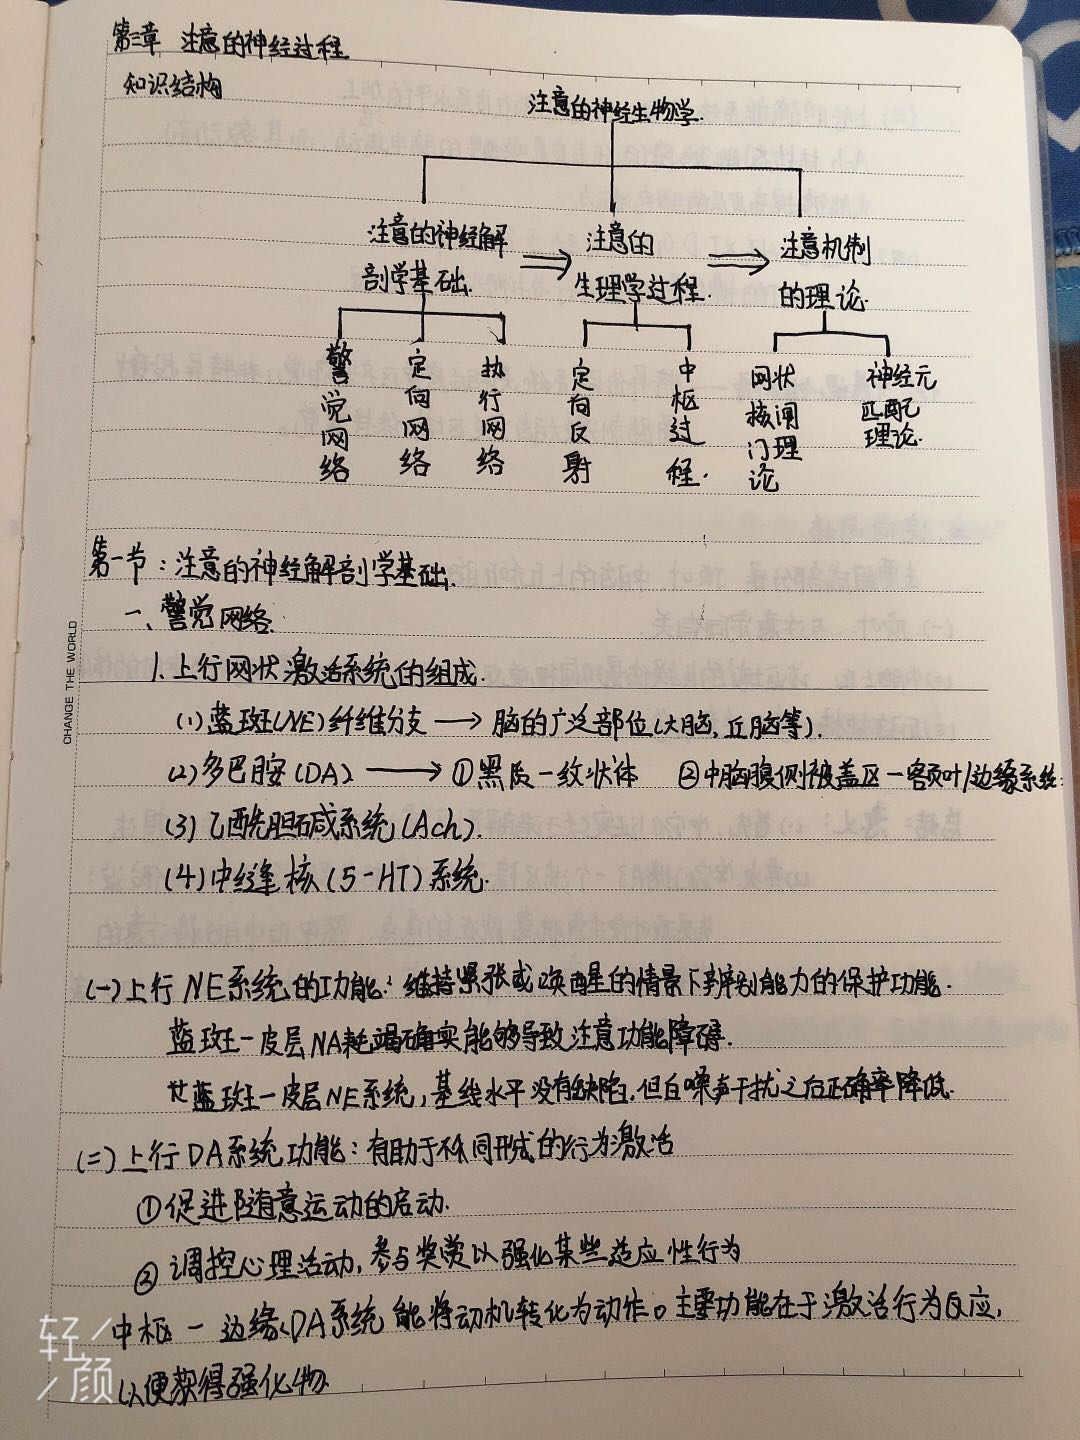 第三章 注意的神经过程
知识结构
注意的神经生物学.
注意的神经解剖学基础.
注意的生理学过程.
注意机制的理论.
警觉网络
定向网络
执行网络
定向反射
中枢过程.
网状核闸门理论
神经元匹配理论.
第一节：注意的神经解剖学基础.
一、警觉网络.
1.上行网状激活系统的组成.
(1)蓝斑(NE)纤维分支→脑的广泛部位(大脑,丘脑等).
(2)多巴胺(DA)→①黑质一纹状体 ②中脑腹侧被盖区一额叶/边缘系统
(3)乙酰胆碱系统(Ach).
(4)中缝核(5-HT)系统.
(一)上行NE系统的功能：维持紧张或唤醒的情景下辨别能力的保护功能.
蓝斑一皮层NA耗竭确实能够导致注意功能障碍.
蓝斑一皮层NE系统,基线水平没有缺陷,但白噪声干扰之后正确率降低.
(二)上行DA系统功能：有助于不同形式的行为激活
①促进随意运动的启动.
②调控心理活动,参与奖赏以强化某些适应性行为
中枢一边缘DA系统能将动机转化为动作。主要功能在于激活行为反应,
以便获得强化物.
CHANGE THE WORLD
轻颜